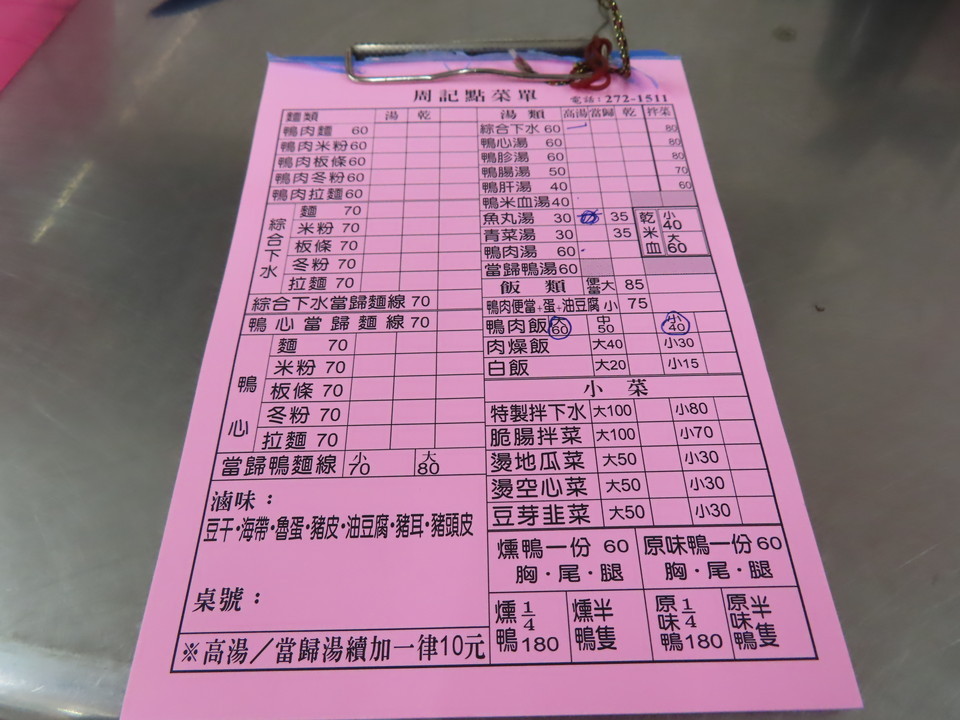 周記點菜單
電話：272-1511
麵類 湯 乾
鴨肉麵 60
鴨肉米粉60
鴨肉板條60
鴨肉冬粉60
鴨肉拉麵60
綜合下水
麵 70
米粉 70
板條 70
冬粉 70
拉麵 70
綜合下水當歸麵線 70
鴨心當歸麵線 70
鴨心
麵 70
米粉 70
板條 70
冬粉 70
拉麵 70
當歸鴨麵線 小70 大80
滷味：
豆干·海帶·魯蛋·豬皮·油豆腐·豬耳·豬頭皮
桌號：
※高湯／當歸湯續加一律10元
湯類 高湯 當歸 乾 拌菜
綜合下水 60 80
鴨心湯 60 80
鴨胗湯 60 80
鴨腸湯 50 70
鴨肝湯 40 60
鴨米血湯40
魚丸湯 30 35
青菜湯 30 35
鴨肉湯 60
當歸鴨湯60
乾米血 小40 大60
飯類 便當大 85
鴨肉便當+蛋+油豆腐 小 75
鴨肉飯 大60 中50 小40
肉燥飯 大40 小30
白飯 大20 小15
小菜
特製拌下水 大100 小80
脆腸拌菜 大100 小70
燙地瓜菜 大50 小30
燙空心菜 大50 小30
豆芽韭菜 大50 小30
燻鴨一份 60 原味鴨一份60
胸·尾·腿 胸·尾·腿
燻鴨 1/4 180
燻鴨半隻
原味鴨 1/4 180
原味鴨半隻